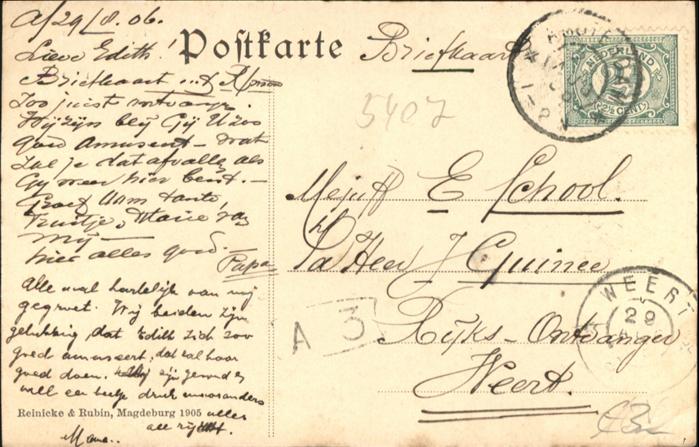 A/29/8.06.
Lieve Edith!
Postkarte
Briefkaart
Briefkaart
Zoo juist ontvangen.
Wij zijn blij Gij U zoo
goed amuseert
zal je dat afvallen als
Gij weer hier bent.
Groet Mam tante
Truitje, Marie van
mij
hier alles goed.
Papa
Alle veel hartelijk van mij
gegroet. Wij beiden zijn
gelukkig, dat Edith zich zoo
goed amuseert, dat zal haar
goed doen.
alles
Mama..
Reinicke & Rubin, Magdeburg 1905
5407
NEDERLAND
2½ CENT
Mejuff E School.
p/a Heer J Guinee
Rijks-Ontvanger
Weert.
A 3
WEERT
29